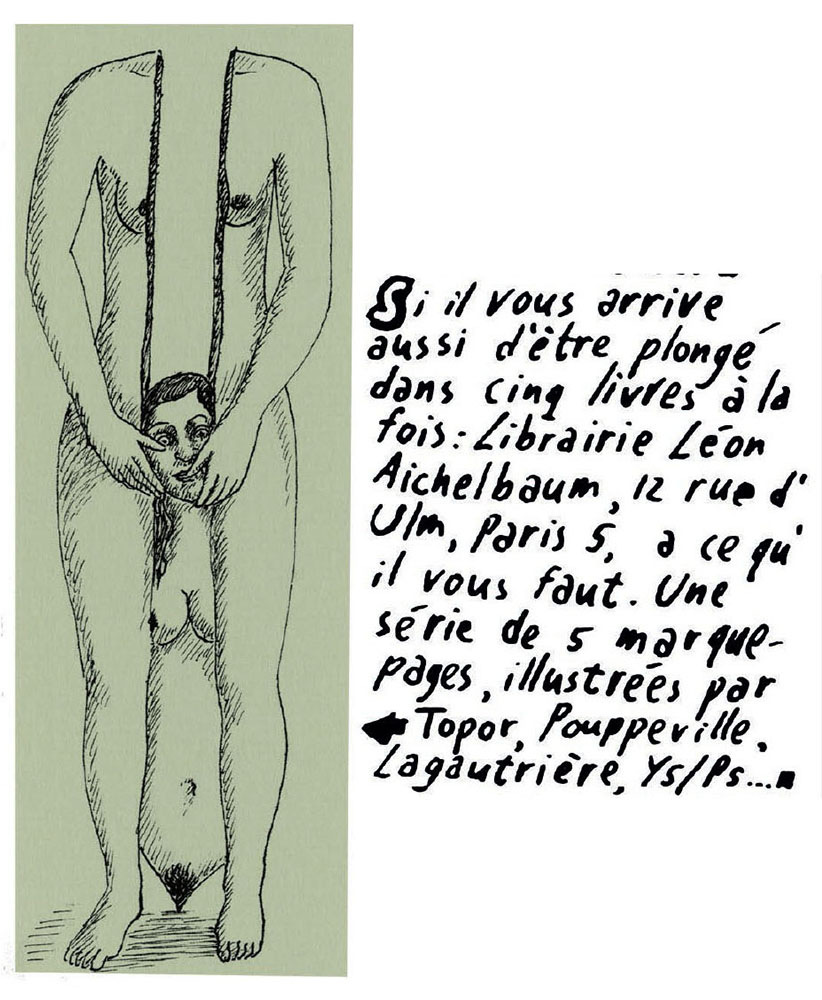 Si il vous arrive
aussi d'être plongé
dans cinq livres à la
fois: Librairie Léon
Aichelbaum, 12 rue d'
Ulm, Paris 5, a ce qu'
il vous faut. Une
série de 5 marque-
pages, illustrées par
Topor, Pouppeville,
Lagautrière, Ys/Ps...